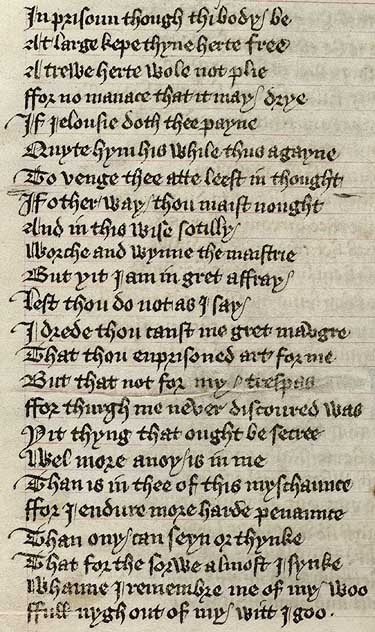 In prisoun though thi body be
At large kepe thyne herte free
A trewe herte wole not plie
ffor no manace that it may drye
If Jelousie doth thee payne
Quyte hym his while thus agayne
To venge thee atte leest in thought
If other way thou maist nought
And in this wise sotilly
Worche and wynne the maistrie
But yit I am in gret affray
Lest thou do not as I say
I drede thou canst me gret maugre
That thou enprisoned art for me
But that not for my trespas
ffor thurgh me never discoured was
Yit thyng that ought be secree
Wel more anoy is in me
Than is in thee of this myschaunce
ffor I endure more harde penaunce
Than ony can seyn or thynke
That for the sorwe almost I synke
Whanne I remembre me of my woo
ffull nygh out of my witt I goo.